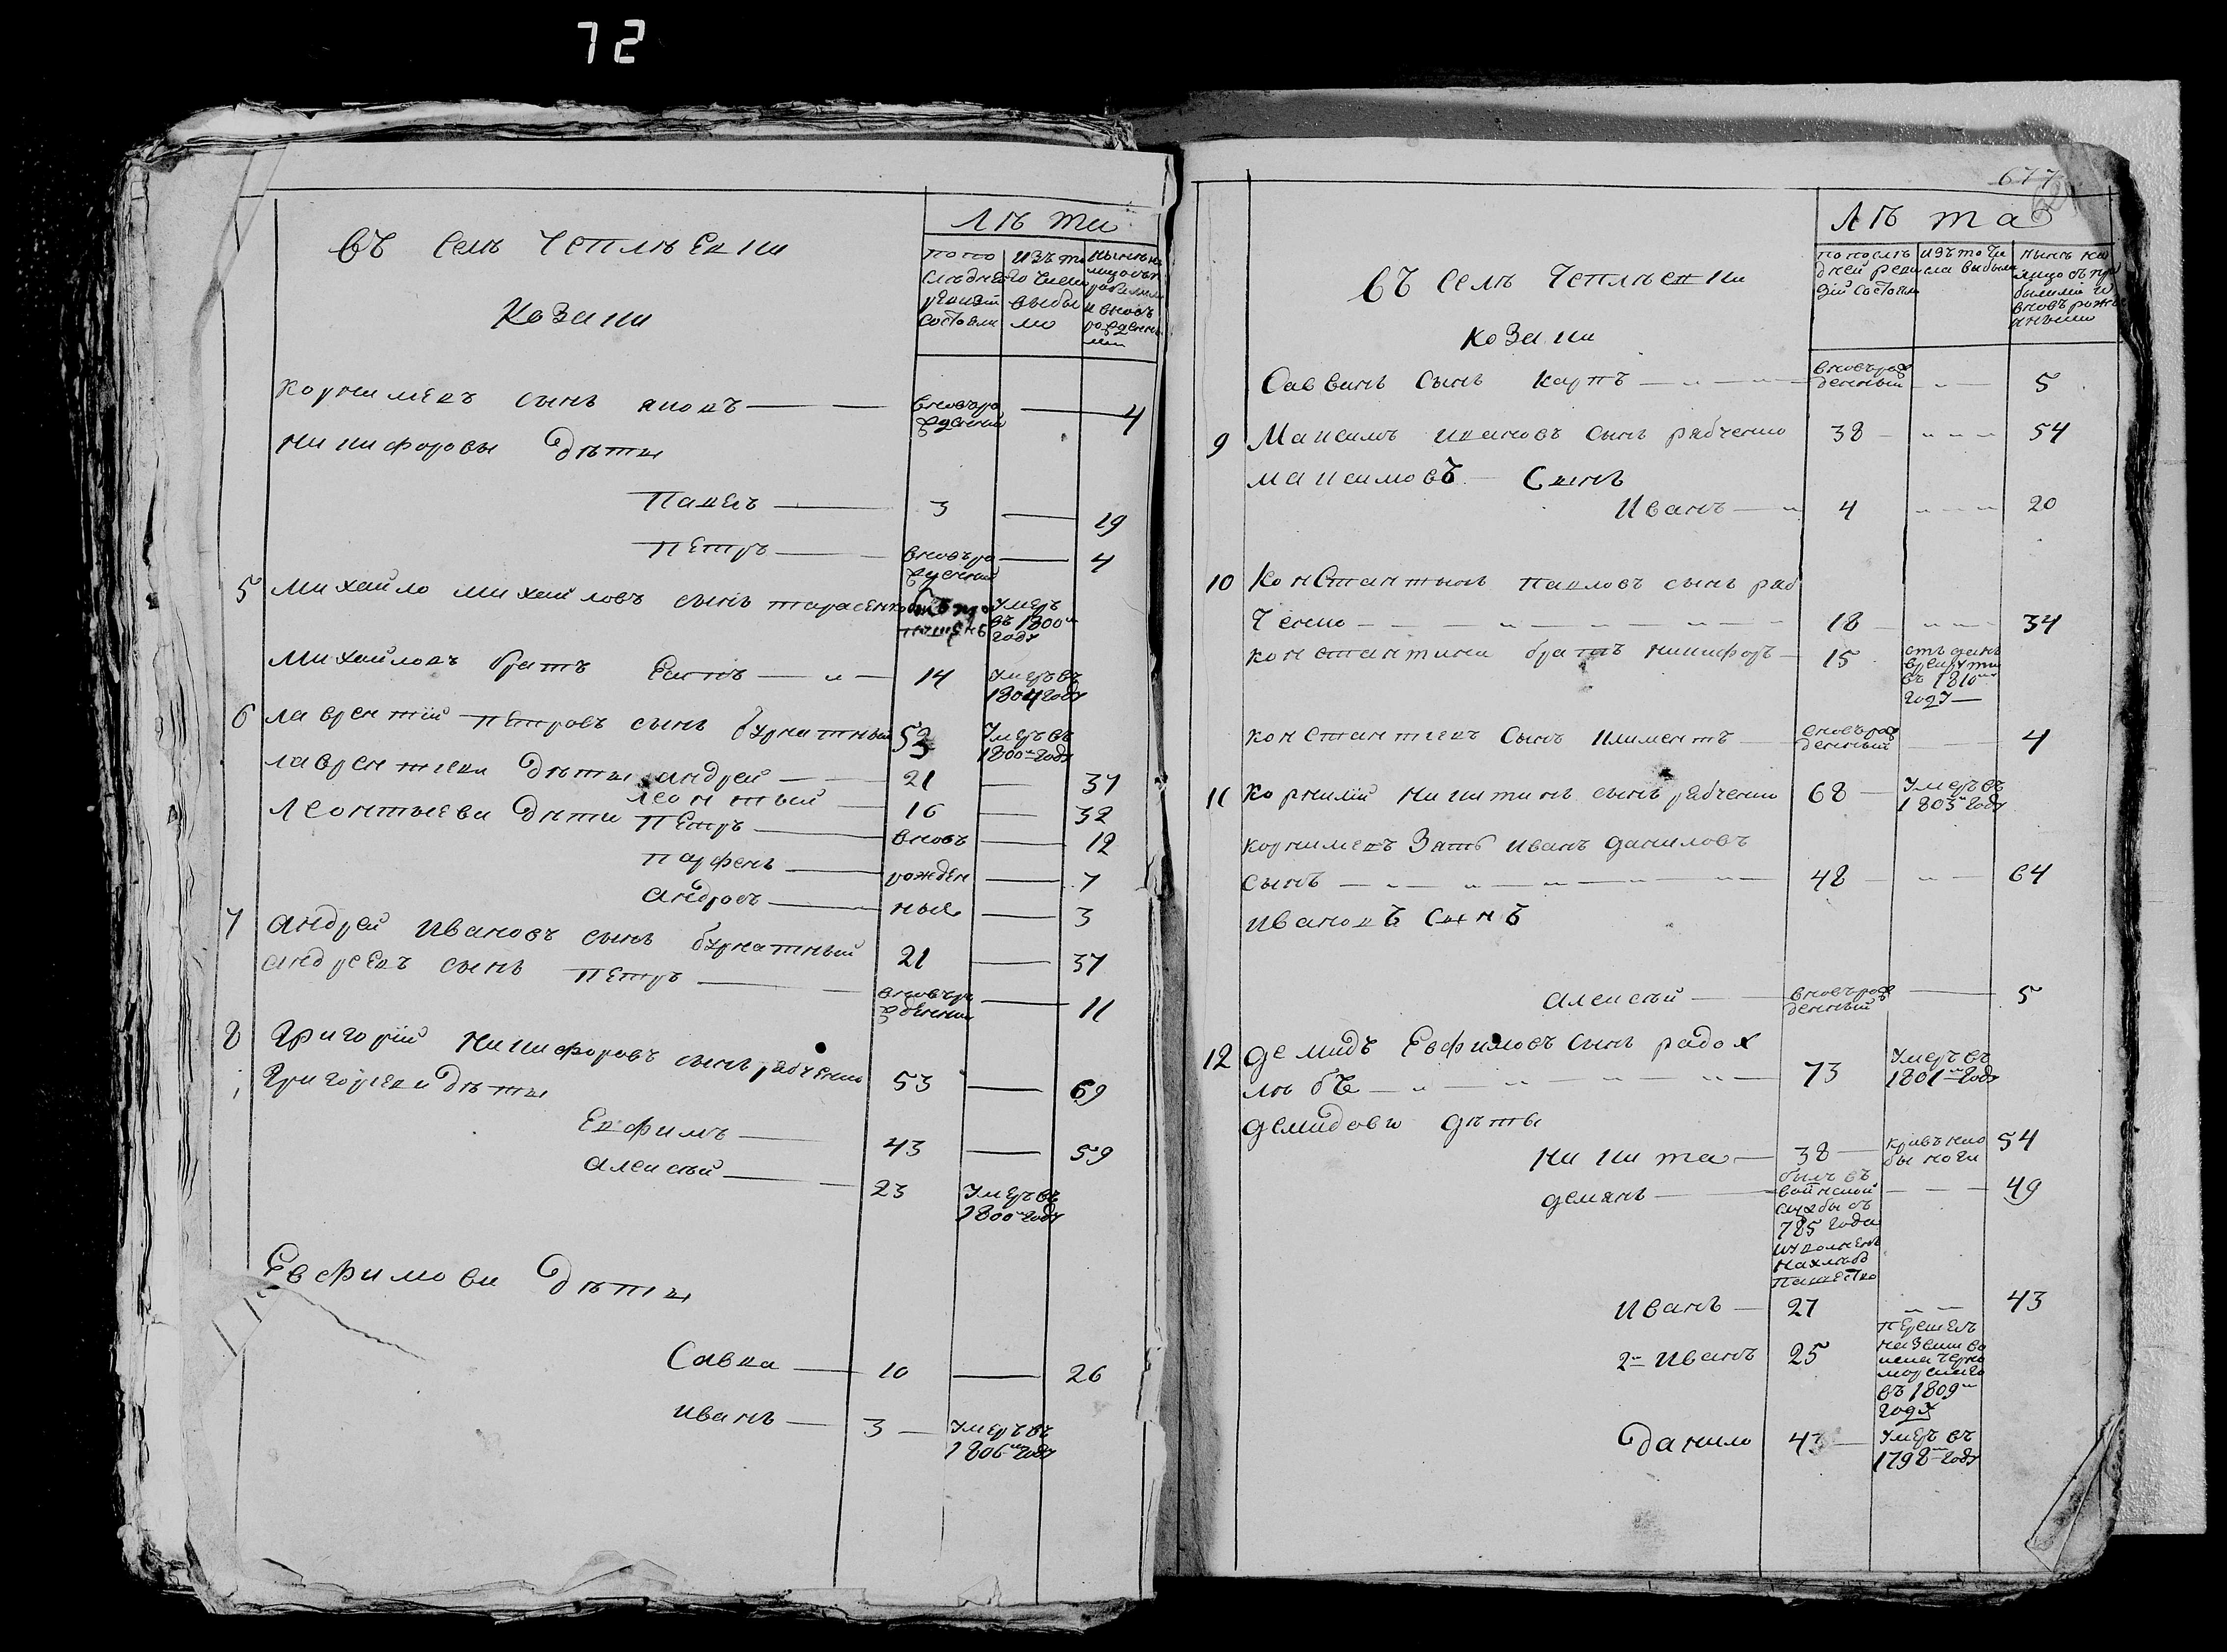 72
Лѣта
въ селѣ Чеплѣевки
козаки
по по
следней
ревизіи
состояли
изъ то
го числа
выбы
ло
Корнилиевъ сынъ яковъ — вновъро жденній — 4
Никифоровы Дѣты
Павелъ — 3 — 19
Петръ — вновъро жденній — 4
5 Михайло михайловъ сынъ тарасенко
Умеръ въ 1800м году
Михайловъ братъ — 14 Умеръ въ 1804 году
6 лаврентій петровъ сынъ бурнатный 53 Умеръ въ 1800м году
лаврентиеви Дѣты андрей — 21 — 37
леонтый — 16 — 32
Леонтыеви Дѣти Петръ — вновъ — 12
парфенъ — рожден — 7
андрей — ные — 3
7 андрей Ивановъ сынъ бурнатный 21 — 37
андреевъ сынъ петръ — вновъро жденний — 11
8 Григорій Никифоровъ сынъ рябченко 53 — 69
Григориеви Дѣты
Евфимъ — 43 — 59
алексѣй — 23 Умеръ въ 1800м году
Евфимови Дѣты
Савва — 10 — 26
иванъ — 3 — Умеръ въ 1806м году
677
Лѣта
въ селѣ Чеплѣевки
козаки
по послѣ
дней реви
зій состояли
изъ то чи
сла выбыли
нынѣ на
лицо съ при
былими и
вновъ рож
Саввинъ сынъ карпъ — вновърож денный — 5
9 Максимъ ивановъ сынъ рябченко 38 — 54
максимовъ Сынъ
Иванъ — 4 — 20
10 Константынъ павловъ сынъ ряб
ченко — 18 — 34
константина братъ никифоръ — 15
въ рекруты
въ 1810м
году —
константиевъ Сынъ климентъ — вновърож денный — 4
11 Корнилій никитинъ сынъ рябченко 68 — Умеръ въ 1803м году
корнилиевъ Зять иванъ даниловъ
сынъ — 48 — 64
ивановъ сынъ
алексѣй — вновърож денный — 5
12 демидъ Евфимовъ сынъ радох
лѣбъ — 73 Умеръ въ 1801м году
демидовы дѣты
Никита — 38 — кривъ на
бы ноги 54
демянъ — былъ въ
воинской
службы съ
785 года
уволненъ
на хлебо
пашество — 49
иванъ — 27 — 43
2й иванъ 25 перешелъ
на земли во
йска черно
морскаго
въ 1809м
году
данило 43 — Умеръ въ
1798м году